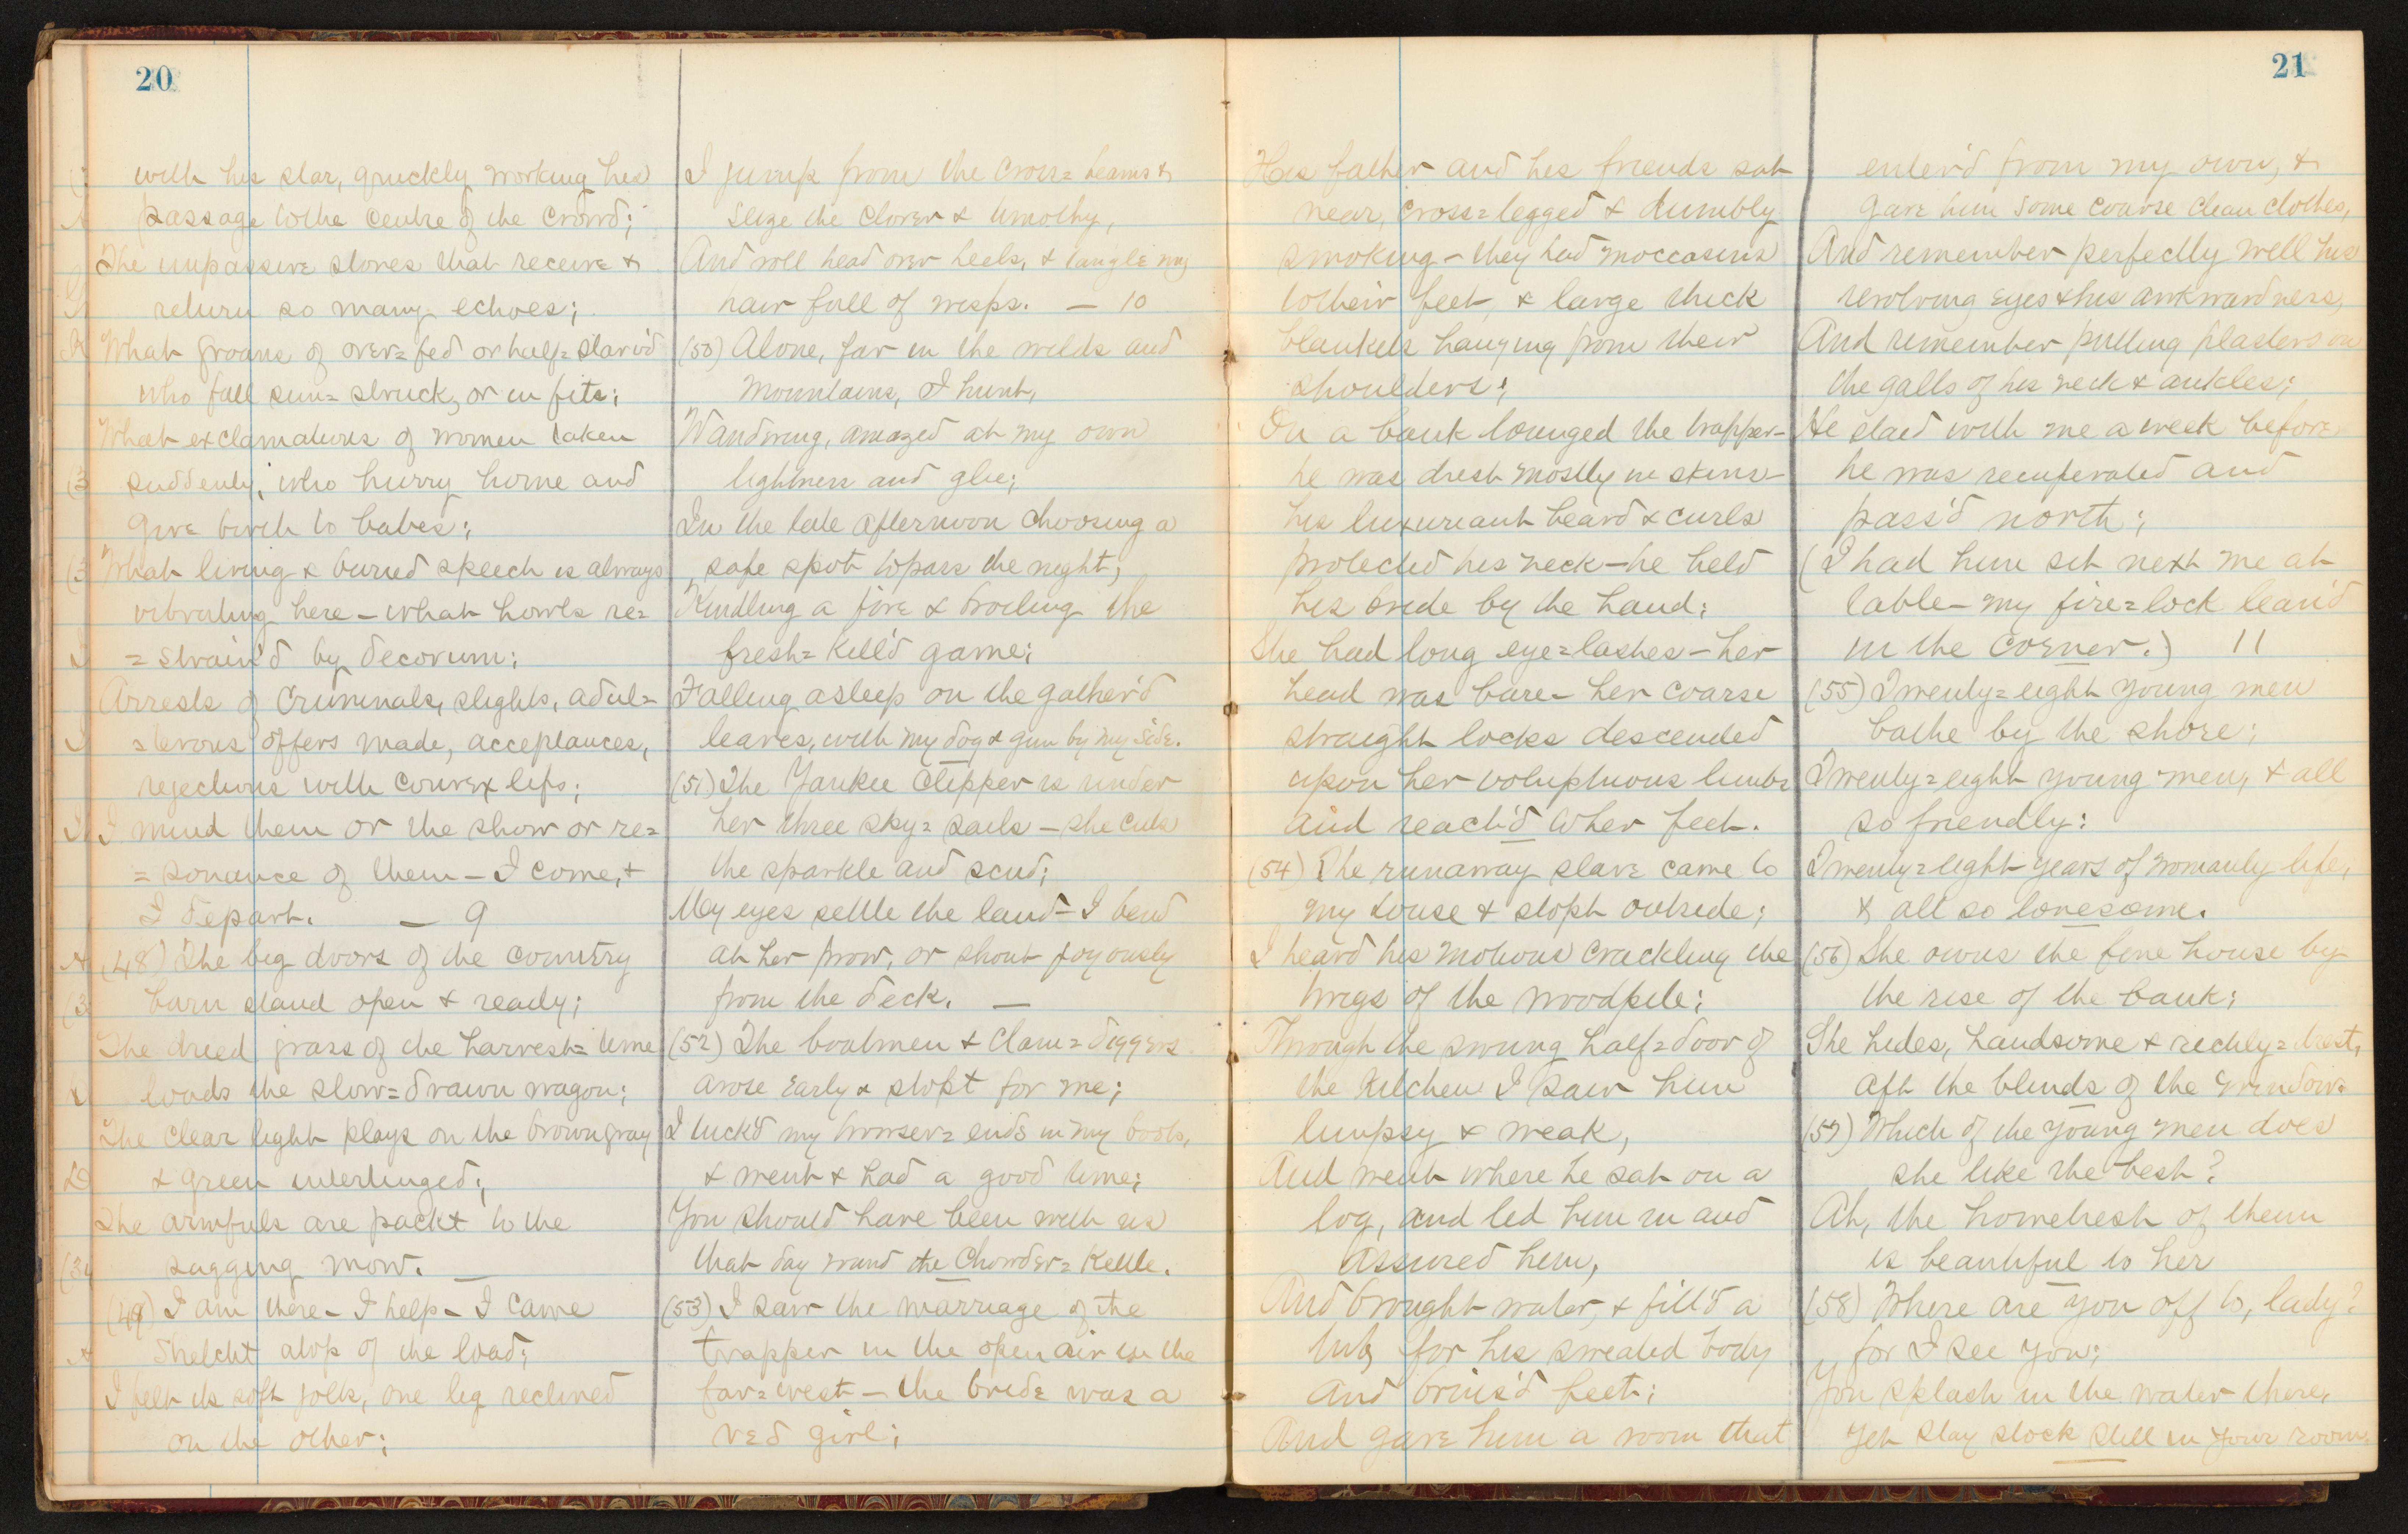 20
with his star, quickly working his
passage to the centre of the crowd;
The impassive stones that receive &
return so many echoes;
What groans of over=fed or half=starv'd
who fall sun=struck, or in fits;
What exclamations of women taken
suddenly, who hurry home and
give birth to babes;
What living & buried speech is always
vibrating here – what howls re=
=strain'd by decorum;
Arrests of Criminals, slights, adul=
=terous offers made, acceptances,
rejections with convex lips;
I mind them or the show or re=
=sonance of them – I come, &
I depart. — 9
(48) The big doors of the country
barn stand open & ready;
The dried grass of the harvest=time
loads the slow=drawn wagon;
The clear light plays on the brown gray
& green intertinged;
The armfuls are packt to the
sagging mow. —
(49) I am there – I help – I came
Stretcht atop of the load;
I felt its soft jolts, one leg reclined
on the other;
I jump from the cross=beams &
seize the clover & timothy,
And roll head over heels, & tangle my
hair full of wisps. — 10
(50) Alone, far in the wilds and
Mountains, I hunt,
Wandering, amazed at my own
lightness and glee;
In the late afternoon choosing a
safe spot to pass the night,
Kindling a fire & broiling the
fresh=kill'd game;
Falling asleep on the gather'd
leaves, with my dog & gun by my side.
(51) The Yankee Clipper is under
her three sky=sails – she cuts
the sparkle and scud;
My eyes settle the land – I bend
at her prow, or shout joyously
from the deck. —
(52) The boatmen & clam=diggers
arose early & stopt for me;
I tuck'd my trowser=ends in my boots,
& went & had a good time;
You should have been with us
that day round the Chowder=Kettle.
(53) I saw the marriage of the
trapper in the open air in the
far=west – the bride was a
red girl;
21
His father and his friends sat
near, cross=legged & dumbly
smoking – they had moccasins
to their feet, & large thick
blankets hanging from their
shoulders;
On a bank lounged the trapper –
he was drest mostly in skins –
his luxuriant beard & curls
protected his neck – he held
his bride by the hand;
She had long eye=lashes – her
head was bare – her coarse
straight locks descended
upon her voluptuous limbs
and reach'd to her feet.
(54) The runaway slave came to
my house & stopt outside;
I heard his motions crackling the
twigs of the woodpile;
Through the swung half=door of
the kitchen I saw him
limpsy & weak,
And went where he sat on a
log, and led him in and
assured him,
And brought water, & fill'd a
tub, for his sweated body
and bruis'd feet;
And gave him a room that
enter'd from my own, &
gave him some coarse clean clothes,
And remember perfectly well his
revolving eyes & his awkwardness,
And remember putting plasters on
the galls of his neck & ankles;
He staid with me a week before
he was recuperated and
pass'd north;
(I had him sit next me at
table – my fire=lock lean'd
in the corner.) 11
(55) Twenty=eight young men
bathe by the shore;
Twenty=eight young men, & all
so friendly:
Twenty=eight years of womanly life,
& all so lonesome.
(56) She owns the fine house by
the rise of the bank;
She hides, handsome & richly=drest,
aft the blinds of the window.
(57) Which of the young men does
she like the best?
Ah, the homeliest of them
is beautiful to her
(58) Where are you off to, lady?
for I see you;
You splash in the water there,
yet stay stock still in your room.